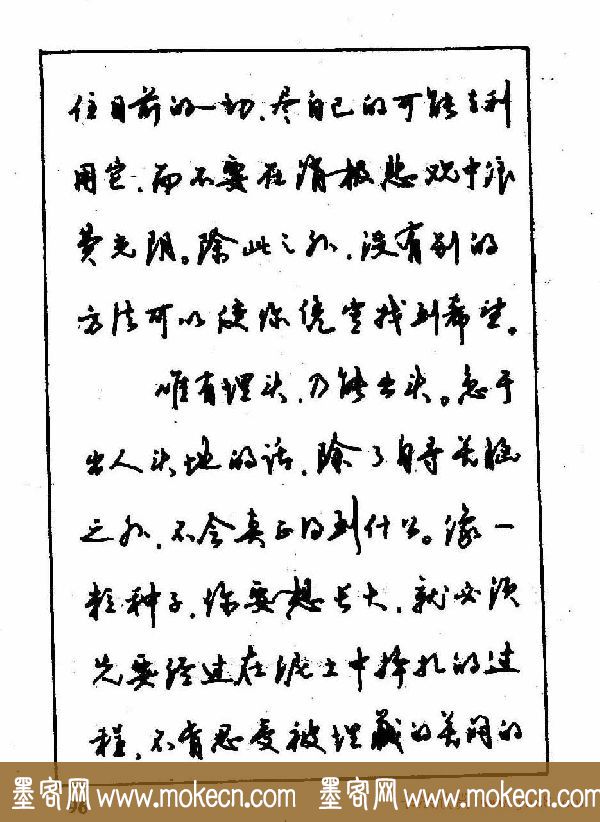 住目前的一切，尽自己的可能去利
用它，而不要在消极悲观中浪
费光阴。除此之外，没有别的
方法可以使你凭空找到希望。
唯有埋头，乃能出头。急于
出人头地的话，除了自寻苦恼
之外，不会真正得到什么。像一
粒种子，你要想长大，就必须
先要经过在泥土中挣扎的过
程，不肯忍受被埋藏的苦闷的
96
墨客网 www.mokecn.com 墨客网 www.mokecn.com